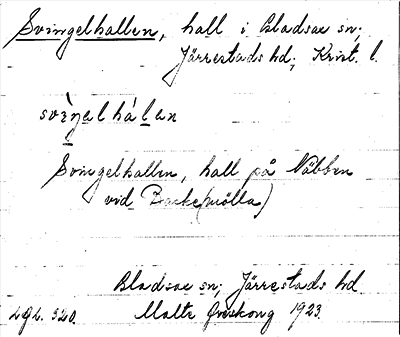 Svingelhallen, hall i Bladsax sn;
Järrestads hd; Krist. l.
svìŋəlháḷən
Svingelhallen, hall på Näbben
vid Backe(mölla)
Bladsax sn; Järrestads hd
Lgl. 520. Malte Areskoug 1923